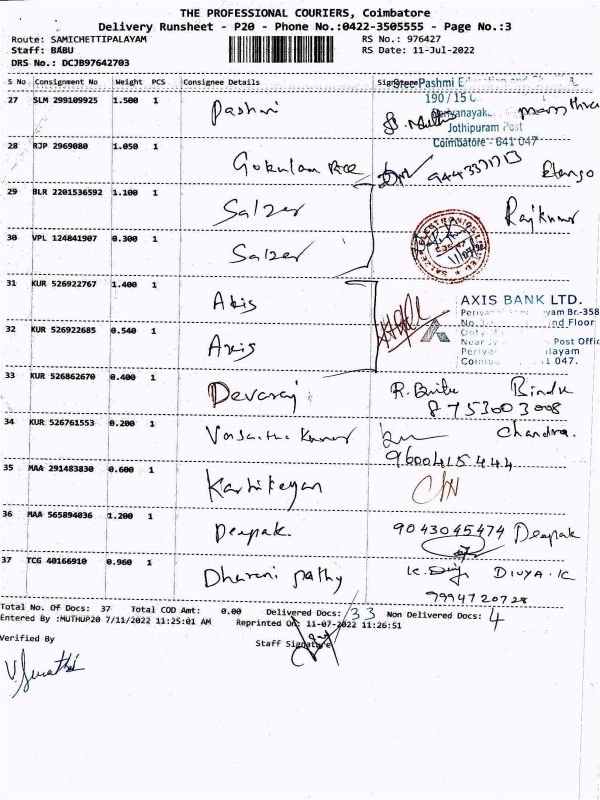 THE PROFESSIONAL COURIERS, Coimbatore
Delivery Runsheet - P20 - Phone No.:0422-3505555 - Page No.:3
Route: SAMICHETTIPALAYAM RS No.: 976427
Staff: BABU RS Date: 11-Jul-2022
DRS No.: DCJB97642703
S No Consignment No Weight PCS Consignee Details Signature
Sree Pashmi
27 SLM 299109925 1.500 1 Pashmi
190 / 15
Jothipuram Post
Coimbatore - 641 047
28 RJP 2969080 1.050 1 Gokulam
29 BLR 2201536592 1.100 1 Salzer Rajkumar
30 VPL 124841907 0.300 1 Salzer
11/07/22
31 KUR 526922767 1.400 1 Axis
AXIS BANK LTD.
yam Br.-358
nd Floor
32 KUR 526922685 0.540 1 Axis
Post Offic
layam
1 047.
33 KUR 526862670 0.400 1 Devaraj R. Bindu Bindu
8753003008
34 KUR 526761553 0.200 1 Vasantha Kumar Chandra.
9600415444
35 MAA 291483830 0.600 1 Karthikeyan
36 MAA 565894036 1.200 1 Deepak. 9043045474 Deepak
37 TCG 40166910 0.960 1 Dharani pathy DIVYA.K
9994720728
Total No. Of Docs: 37 Total COD Amt: 0.00 Delivered Docs: 33 Non Delivered Docs: 4
Entered By :MUTHUP20 7/11/2022 11:25:01 AM Reprinted On: 11-07-2022 11:26:51
Verified By Staff Signature